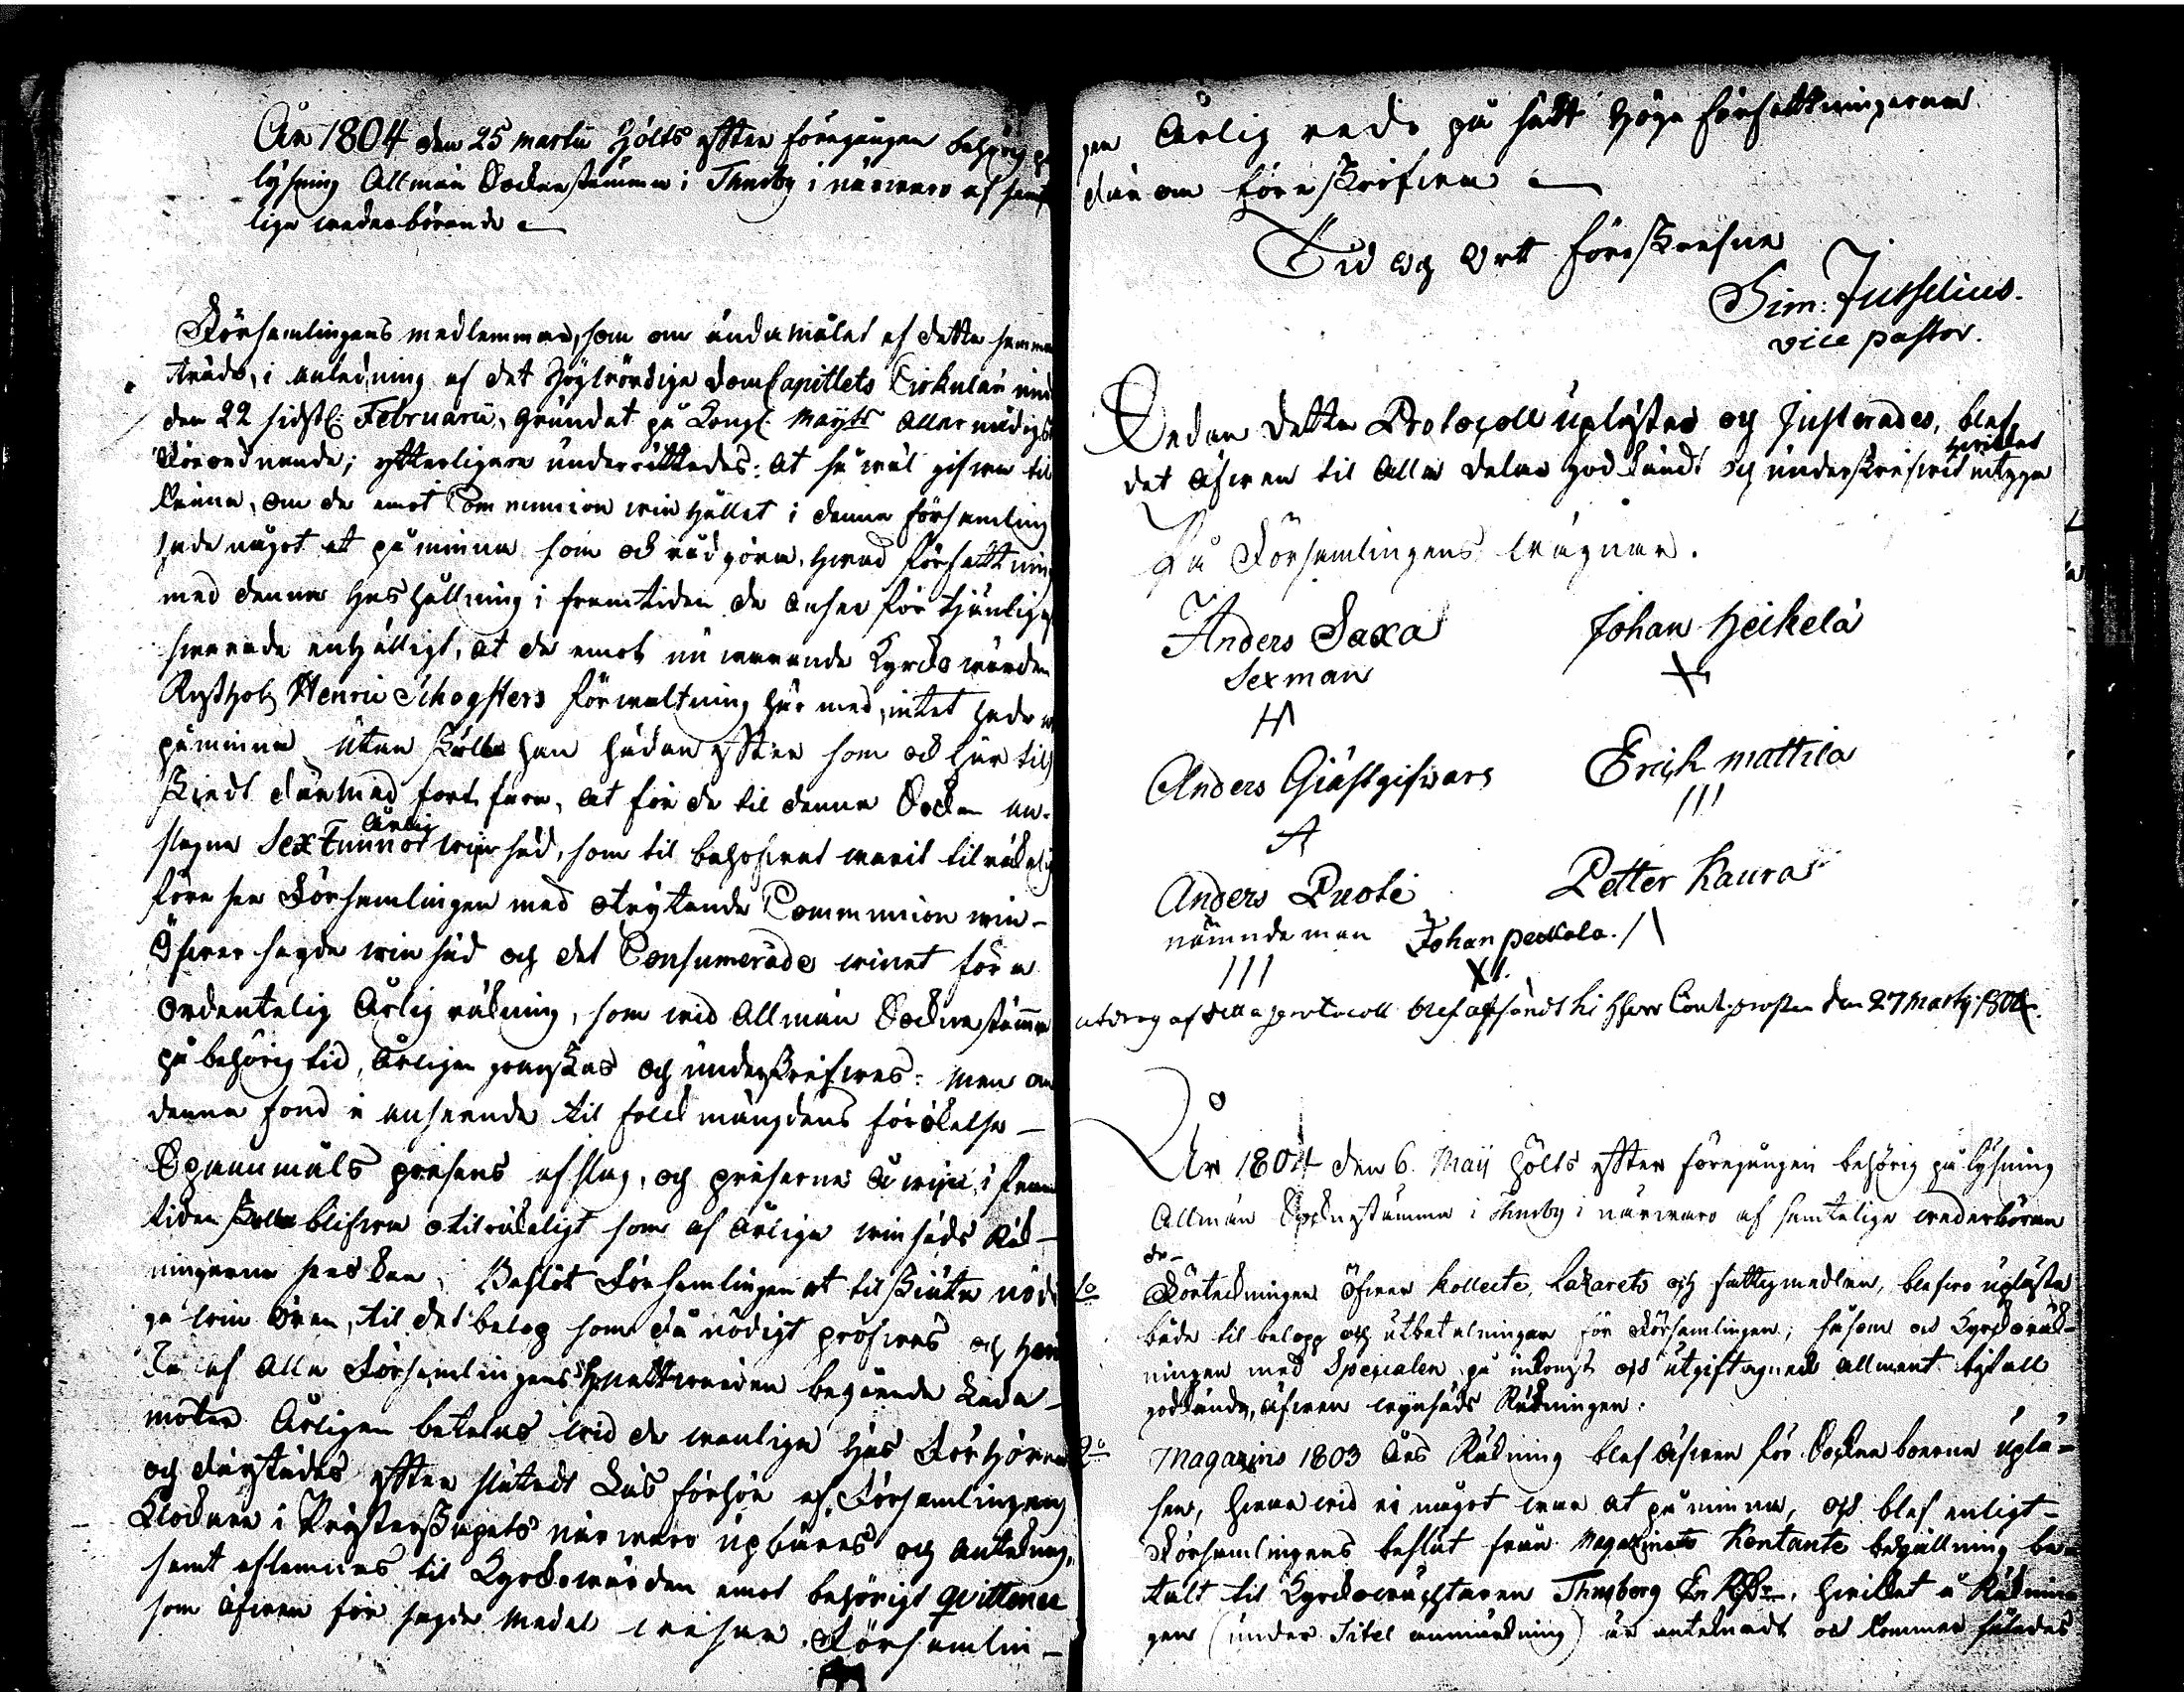 År 1804 den 25 Martii Hölts efter föregången behörig på
lysning Allmän Sockenstämma i Thusby i närvaro af samt
lige wederbörande
Församlingens medlemmar, som om ändamålet af detta samman
träde, i anledning af det Högwördige DomCapitlets Circulair
den 22 sidstl. Februarii, grundat på Kongl. Mayts Allernådigst
Förordnande; ytterligare underrättades: at så wäl gifwa til
känna, om de emot Communion win hållet i denna församling
hade något att påminna som ock rådgöra, hwad författning
med denna Hushållning i framtiden de anse för tjänligast
swarade enhälligt, at de emot nu warande Kyrckowärden
Rusthol Henric Skogsters förwaltning här med, intet hade
påminna utan skulle han hädanefter som ock här til
Skiedt därmed fortfara, at för de til denna Socken an-
slagne Sex Tunnor Årlig winsäd, som til behofwet warit tilräckelig
förse Församlingen med otrytande Communion win-
Öfwer sagde winsäd och det Consumerade winet föra
ordentelig Årlig räkning, som wid Allmän Sockenstämma
på behörig tid, årligen granskas och underskrifwes: men om
denna fond i anseende til folckmängdens förökelse-
Spannmåls prisens afslag, och priserne å win, i fram
tiden skulle blifwa otilräckeligt som af årlige winsäds Räk-
ningarne synas kan; Beslöt Församlingen at tilskiuta nödi
ga win ören, til det belopp som då nödigt pröfwas och
af alla Församlingens Nattwarden begående Leda-
möter Årligen betalas wid de wanliga Hus Förhören
och därstädes efter slutadt Läs förhör af Församlingens
Klockare i Prästerskapets närwaro upbäres och antecknas,
samt aflemnas til Kyrckowärden emot behörigt qvittence
som äfwen för sagde medel wisar Församlin-
gen Årlig redo på sätt Höga författningarne
där om föreskrifwa
Tid och Ort föreskrefne
Sim: Jusselius.
vice pastor.
Sedan detta Protocoll uplästes och Justerades, blef
det äfwen til Alla delar godkändt och underskrifwit hwilket intyga
På Församlingens wägnar.
Anders Saxa Johan Heikelä
Sexman
Anders Giästgifwars Erich Mattila
Anders Ruoti Petter Kauras
nämndeman Johan Peckola.
utdrag af detta protocoll blef afsändt til Herr Cont.prosten den 27 Martij 1804.
År 1804 den 6 Maij Hölts efter föregången behörig pålysning
Allmän Sockenstämma i Thusby i närwaro af samtelige wederböran
de-
1o Förteckningen Öfwer kollecte, Lazarets och fattigmedlen, blefwo uplästa
både til belopp och utbetalningar för Församlingen; såsom ock Kyrckoräk-
ningen med Specialen på inkomst och utgift agnat allment bifall
godkända, äfwen wynsäds Räkningen.
2o Magazins 1803 Års Räkning blef äfwen för Sockneboerne uplä-
sen, hwarwid ej något war at påminna, och blef enligt-
Församlingens beslut från Magazinets Kontante behållning be-
talt til Kyrckowäcktaren Thusberg hwilket i Räknin
gen (under Titel anmärckning) är antecknadt och kommer således